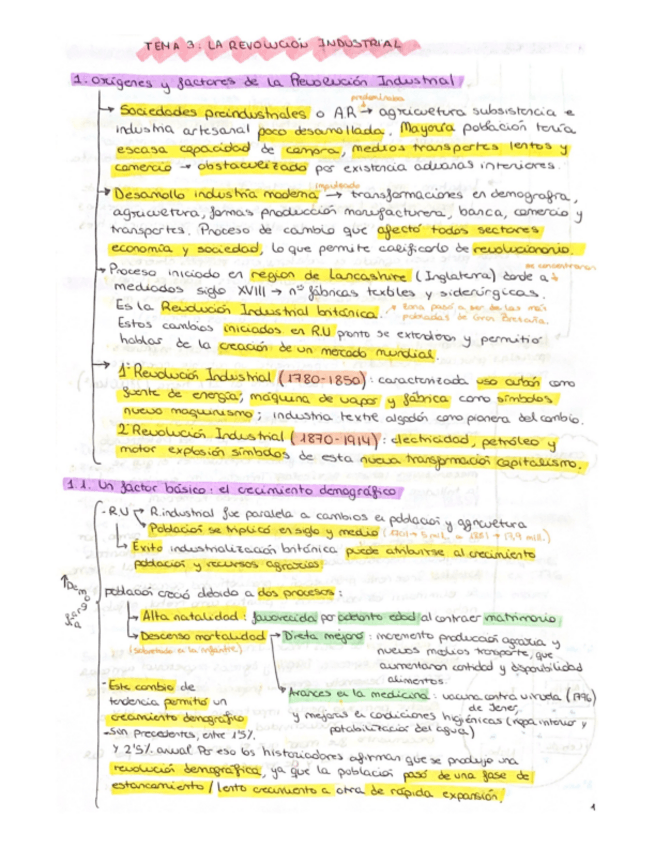 TEMA 3: LA REVOLUCIÓN INDUSTRIAL
1. Orígenes y factores de la Revolución Industrial
predominaba
Sociedades preindustriales o A.R → agricultura subsistencia e
industria artesanal poco desarrollada. Mayoría población tenía
escasa capacidad de compra, medios transportes lentos y
comercio → obstaculizado por existencia aduanas interiores.
impulsado
Desarrollo industria moderna → transformaciones en demografía,
agricultura, formas producción manufacturera, banca, comercio y
transportes. Proceso de cambio que afectó todos sectores
economía y sociedad, lo que permite calificarlo de revolucionario.
se concentraron
Proceso iniciado en región de Lancashire (Inglaterra) donde a
mediados siglo XVIII → nº fábricas textiles y siderúrgicas.
Es la Revolución Industrial británica. → Zona pasó a ser de las más
pobladas de Gran Bretaña.
Estos cambios iniciados en R.U pronto se extendieron y permitió
hablar de la creación de un mercado mundial.
1ª Revolución Industrial (1780-1850): caracterizada uso carbón como
fuente de energía; máquina de vapor y fábrica como símbolos
nuevo maquinismo; industria textil algodón como pionera del cambio.
2ª Revolución Industrial (1870-1914): electricidad, petróleo y
motor explosión símbolos de esta nueva transformación capitalismo.
1.1. Un factor básico: el crecimiento demográfico
- R.U → R.industrial fue paralela a cambios en población y agricultura
Población se triplicó en siglo y medio
Éxito industrialización británica puede atribuirse al crecimiento
población y recursos agrarios
↑Demografía
población creció debido a dos procesos:
Alta natalidad: favorecida por adelanto edad al contraer matrimonio
Descenso mortalidad → Dieta mejoró: incremento producción agraria y
(sobretodo en la infantil)
nuevos medios transporte, que
aumentaron cantidad y disponibilidad
alimentos.
Avances en la medicina: vacuna contra viruela (1796)
de Jener
y mejoras en condiciones higiénicas (ropa interior y
potabilización del agua)
- Este cambio de
tendencia permitió un
crecimiento demográfico
- Sin precedentes, entre 1'5%
y 2'5% anual. Por eso los historiadores afirman que se produjo una
revolución demográfica, ya que la población pasó de una fase de
estancamiento / lento crecimiento a otra de rápida expansión.
1